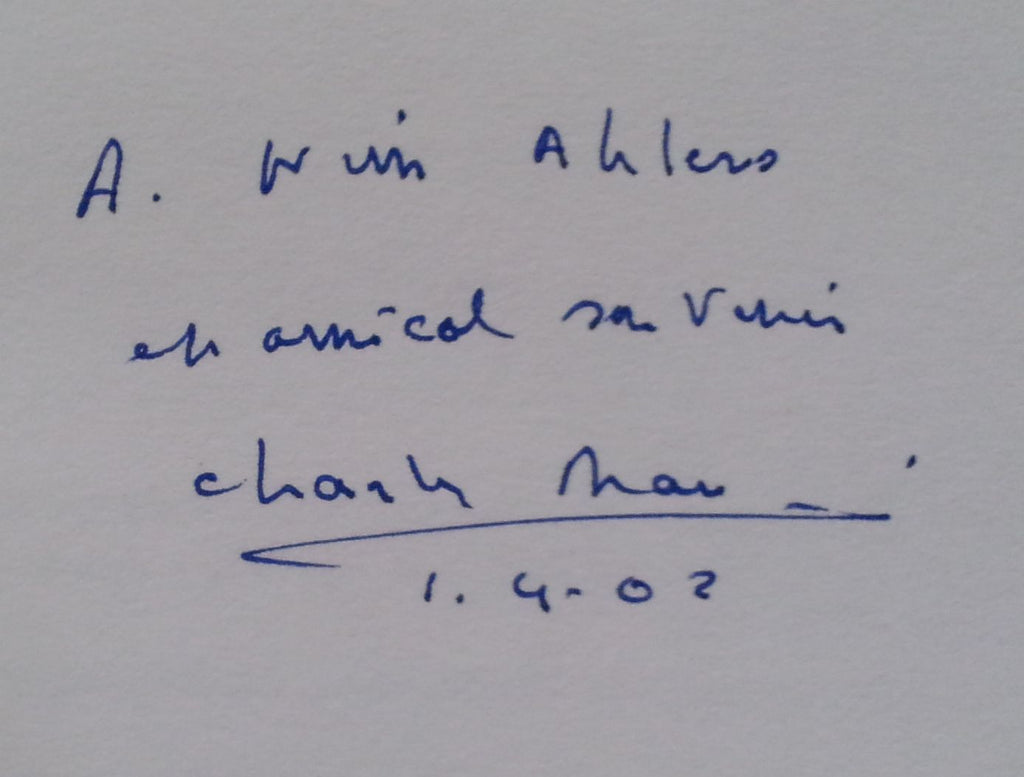 A. Wim Ahlers
en amical souvenir
Charles
1.4.02